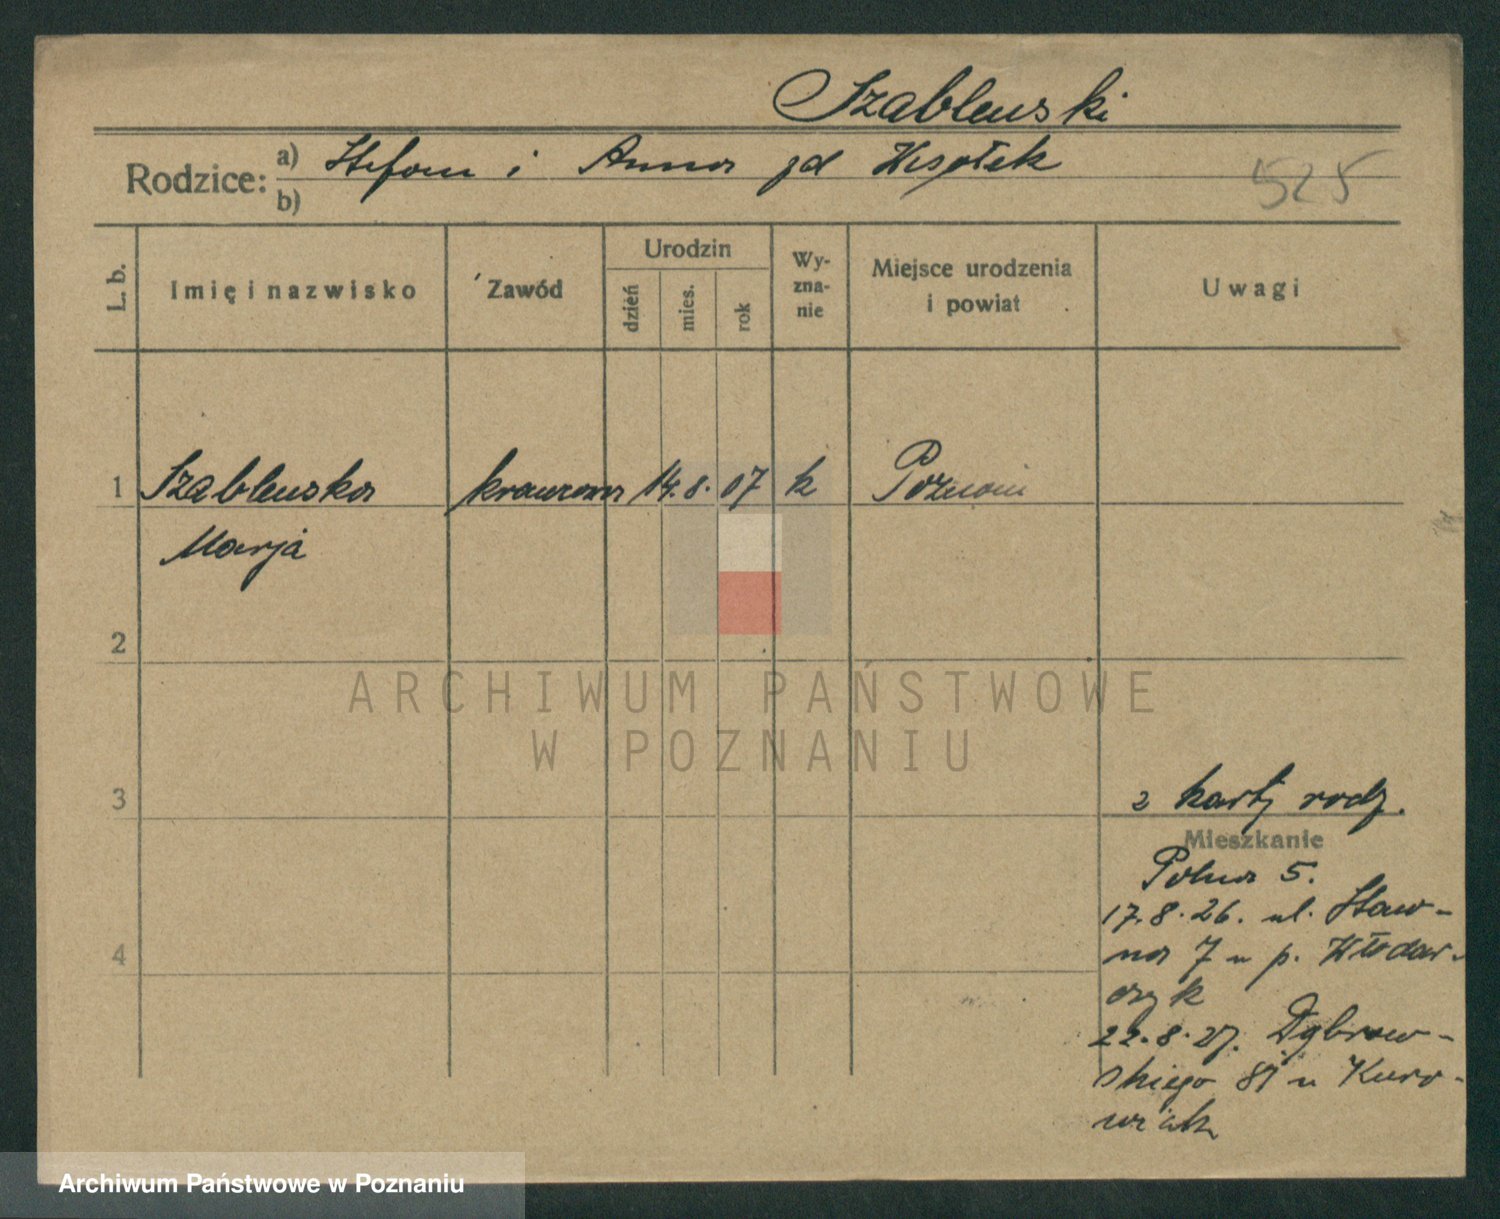 Szablewski
Rodzice: a) Stefan i Anna zd Wesołek
b)
525
L. b. Imię i nazwisko Zawód Urodzin dzień mies. rok Wyznanie Miejsce urodzenia i powiat Uwagi
1 Szablewska krawcowa 14. 8. 07 k Poznań
Marja
2
ARCHIWUM PAŃSTWOWE
W POZNANIU
3
z karty rodz.
Mieszkanie
Polna 5.
17.8.26. ul. Staw-
na 7 u p. Włodar-
4
czyk
22.8.27. Dąbrow-
skiego 81 u Kuro-
wiak
Archiwum Państwowe w Poznaniu